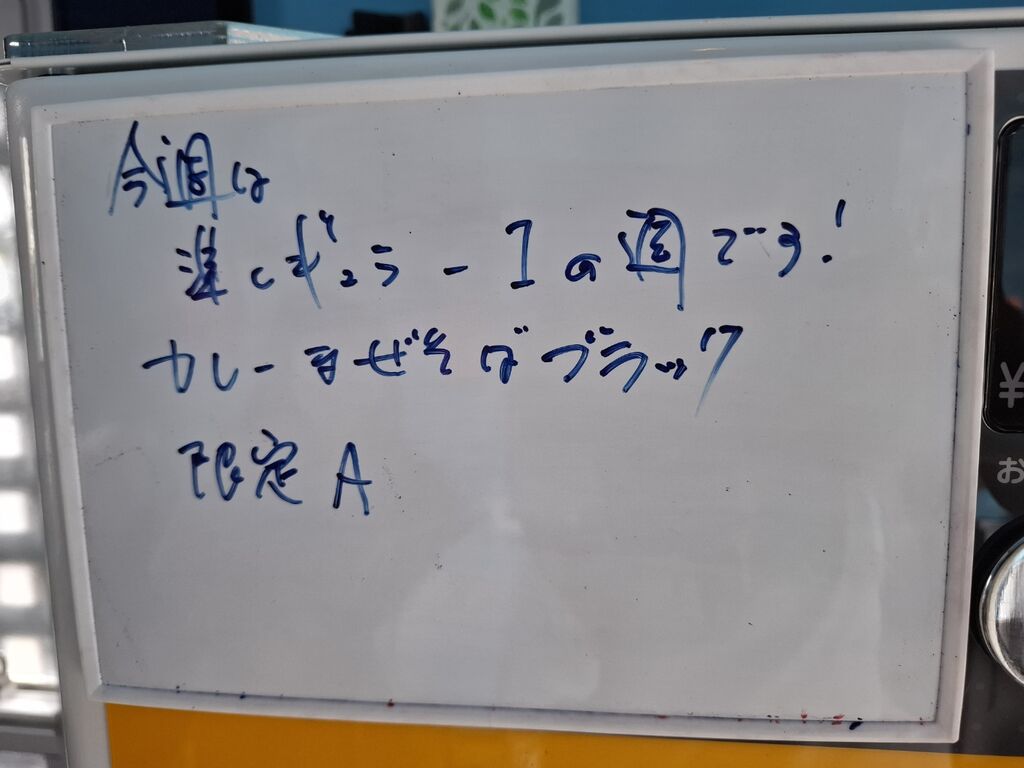 今週は
凄しぎょうーIの週です!
カレーまぜそばブラック
限定A
¥
お